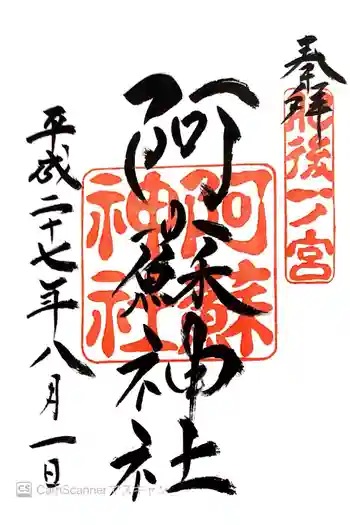 奉拝
肥後一ノ宮
阿蘇神社
阿蘇
神社
平成二十七年八月一日
CS CamScanner でスキャン